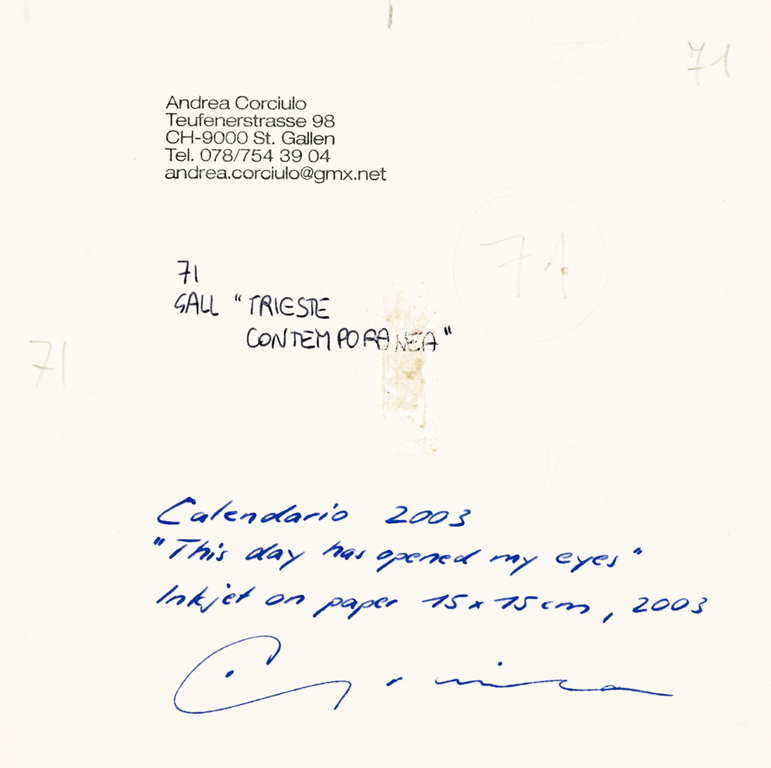 71
Andrea Corciulo
Teufenerstrasse 98
CH-9000 St. Gallen
Tel. 078/754 39 04
andrea.corciulo@gmx.net
71
71
GALL "TRIESTE
CONTEMPORANEA"
71
Calendario 2003
"This day has opened my eyes"
Inkjet on paper 15x15cm, 2003